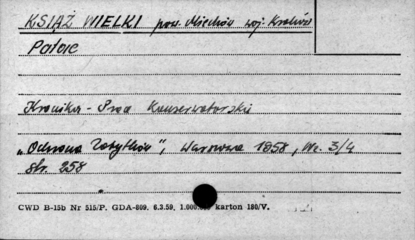 KSIĄŻ WIELKI pow. Miechów woj. Kraków
Pałac
Kronika - Prac Konserwatorskich
„Ochrona Zabytków", Warszawa 1958, Nr. 3/4
str. 258
CWD B-15b Nr 515/P. GDA-809. 6.3.59. 1.000. karton 180/V.